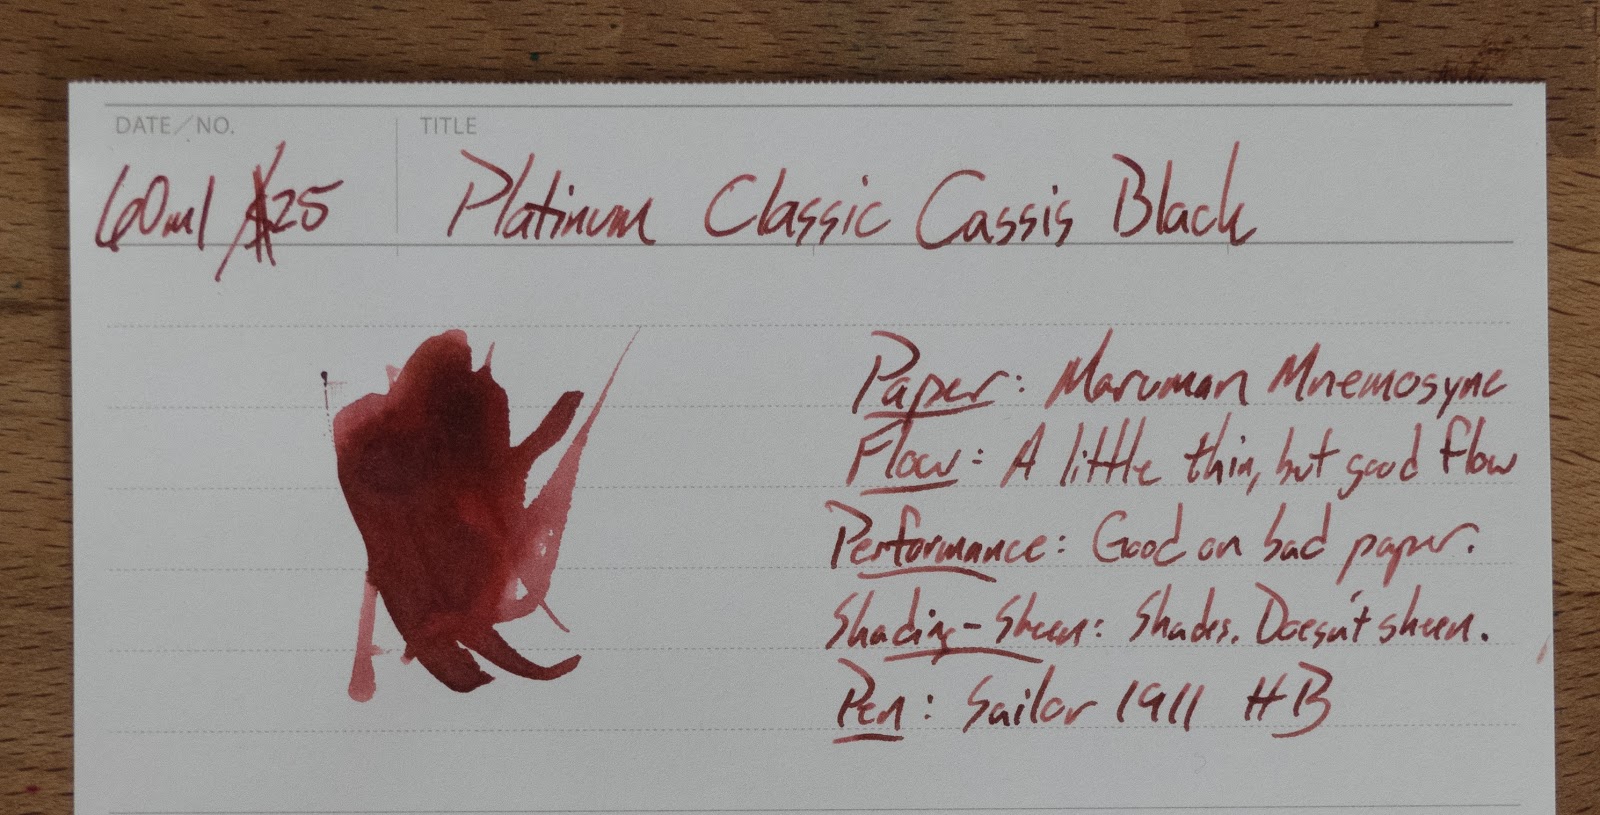 DATE/NO. TITLE
60ml $25 Platinum Classic Cassis Black
Paper: Maruman Mnemosyne
Flow: A little thin, but good flow
Performance: Good on bad paper.
Shading-Sheen: Shades. Doesn't sheen.
Pen: Sailor 1911 HB